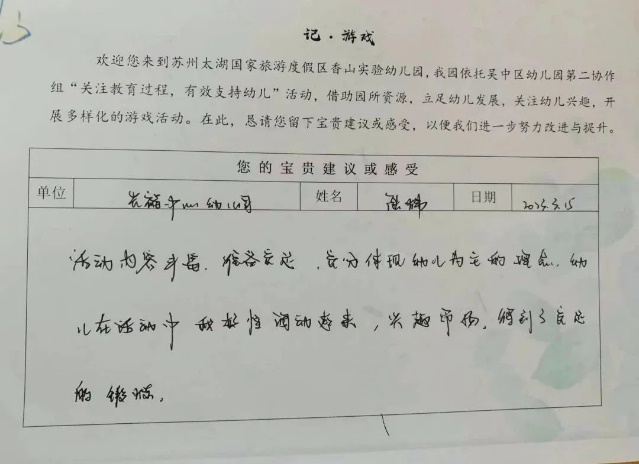 记·游戏
欢迎您来到苏州太湖国家旅游度假区香山实验幼儿园，我园依托吴中区幼儿园第二协作
组“关注教育过程，有效支持幼儿”活动，借助园所资源，立足幼儿发展，关注幼儿兴趣，开
展多样化的游戏活动。在此，恳请您留下宝贵建议或感受，以便我们进一步努力改进与提升。
您的宝贵建议或感受
单位 光福中心幼儿园 姓名 日期
活动内容丰富，准备充足，充分体现幼儿为主的理念，幼
儿在活动中积极性调动起来，兴趣高扬，得到了充足
的锻炼。